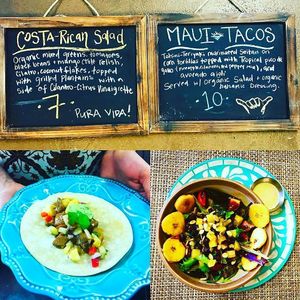 COSTA-RICAN SALAD
Organic mixed greens, tomatoes,
black beans + mango chile relish,
cilantro, coconut flakes, topped
with grilled Plantains with a
side of Cilantro-Citrus Vinaigrette
7.
PURA VIDA!
MAUI TACOS
Tahini-Teriyaki marinated Seitan on
corn tortillas topped with Tropical pico de
gallo
avocado aioli
Served w/ Organic Salad + organic
balsamic Dressing.
10.